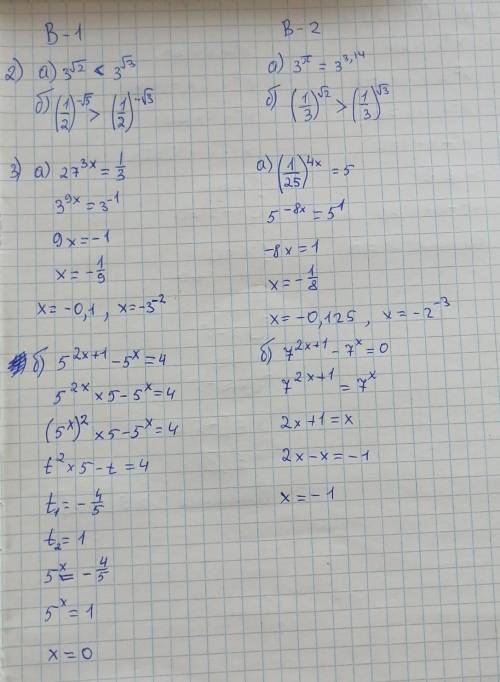 В-1
2) а) 3^√2 < 3^√3
б) (1/2)^-√5 > (1/2)^-√3
3) а) 27^3x = 1/3
3^9x = 3^-1
9x = -1
x = -1/9
x = -0,1 , x = -3^-2
б) 5^2x+1 - 5^x = 4
5^2x × 5 - 5^x = 4
(5^x)^2 × 5 - 5^x = 4
t^2 × 5 - t = 4
t₁ = -4/5
t₂ = 1
5^x = -4/5
5^x = 1
x = 0
В-2
а) 3^π = 3^3,14
б) (1/3)^√2 > (1/3)^√3
а) (1/25)^4x = 5
5^-8x = 5^1
-8x = 1
x = -1/8
x = -0,125 , x = -2^-3
б) 7^2x+1 - 7^x = 0
7^2x+1 = 7^x
2x+1 = x
2x - x = -1
x = -1